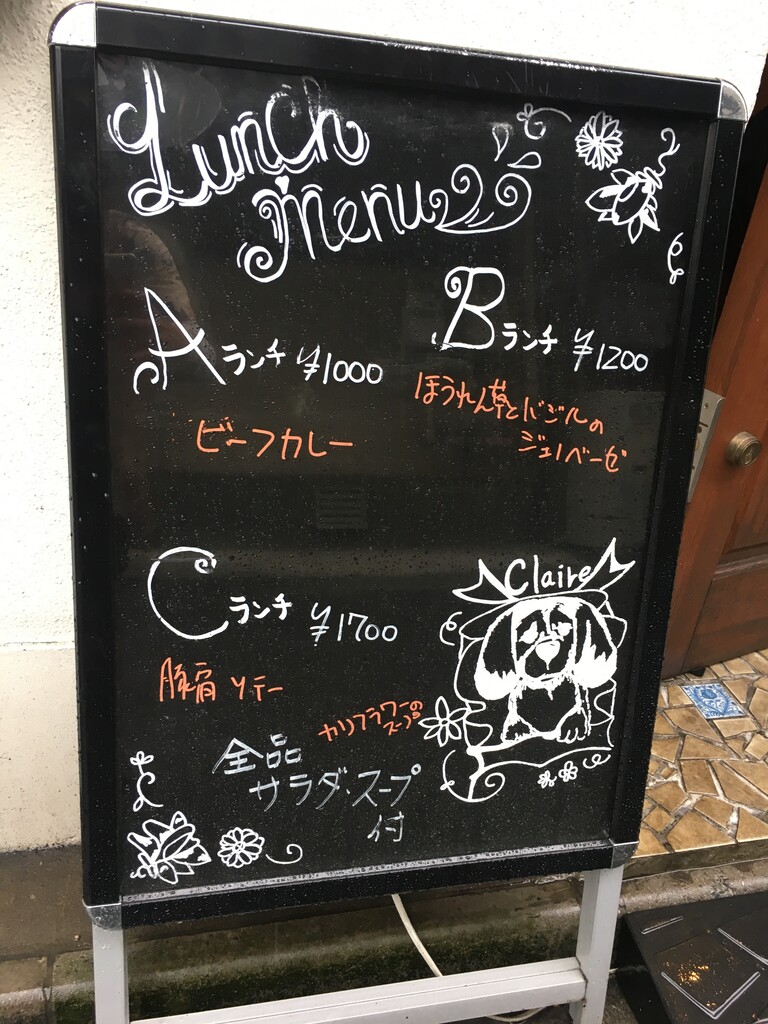 Lunch
Menu
Aランチ ¥1000
ビーフカレー
Bランチ ¥1200
ほうれん草とバジルの
ジェノベーゼ
Cランチ ¥1700
豚肩ソテー
Claire
カリフラワーの
スープ
全品
サラダ・スープ
付